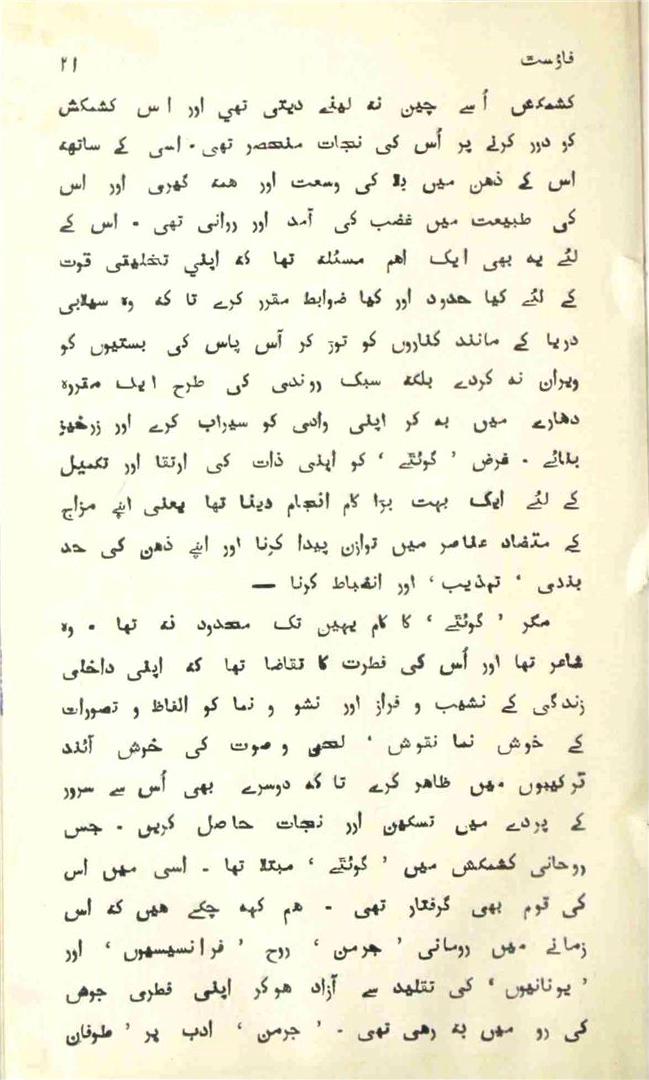 فاؤست ۲۱
کشمکش اُسے چین نہ لینے دیتی تھی اور اس کشمکش
کو دور کرنے پر اُس کی نجات منحصر تھی۔ اسی کے ساتھ
اس کے ذہن میں بلا کی وسعت اور ہمہ گیری اور اس
کی طبیعت میں غضب کی آمد اور روانی تھی۔ اس کے
لئے یہ بھی ایک اہم مسئلہ تھا کہ اپنی تخلیقی قوت
کے لئے کیا حدود اور کیا ضوابط مقرر کرے تا کہ وہ سیلابی
دریا کے مانند کناروں کو توڑ کر آس پاس کی بستیوں کو
ویران نہ کردے بلکہ سبک روندی کی طرح ایک مقررہ
دھارے میں بہ کر اپنی وادی کو سیراب کرے اور زرخیز
بنائے۔ غرض ’گوئٹے‘ کو اپنی ذات کی ارتقا اور تکمیل
کے لئے ایک بہت بڑا کام انجام دینا تھا یعنی اپنے مزاج
کے متضاد عناصر میں توازن پیدا کرنا اور اپنے ذہن کی حد
بندی ‘ تہذیب‘ اور انضباط کرنا —
مگر ’گوئٹے‘ کا کام یہیں تک محدود نہ تھا۔ وہ
شاعر تھا اور اُس کی فطرت کا تقاضا تھا کہ اپنی داخلی
زندگی کے نشیب و فراز اور نشو و نما کو الفاظ و تصورات
کے خوش نما نقوش ‘ لحن و صوت کی خوش آئند
ترکیبوں میں ظاہر کرے تا کہ دوسرے بھی اُس سے سرور
کے پردے میں تسکین اور نجات حاصل کریں۔ جس
روحانی کشمکش میں ’گوئٹے‘ مبتلا تھا۔ اسی میں اس
کی قوم بھی گرفتار تھی۔ ہم کہہ چکے ہیں کہ اس
زمانے میں رومانی ’جرمن‘ روح ’فرانسیسیوں‘ اور
’یونانیوں‘ کی تقلید سے آزاد ہوکر اپنی فطری جوش
کی رو میں بہ رہی تھی۔ ’جرمن‘ ادب پر ’طوفان